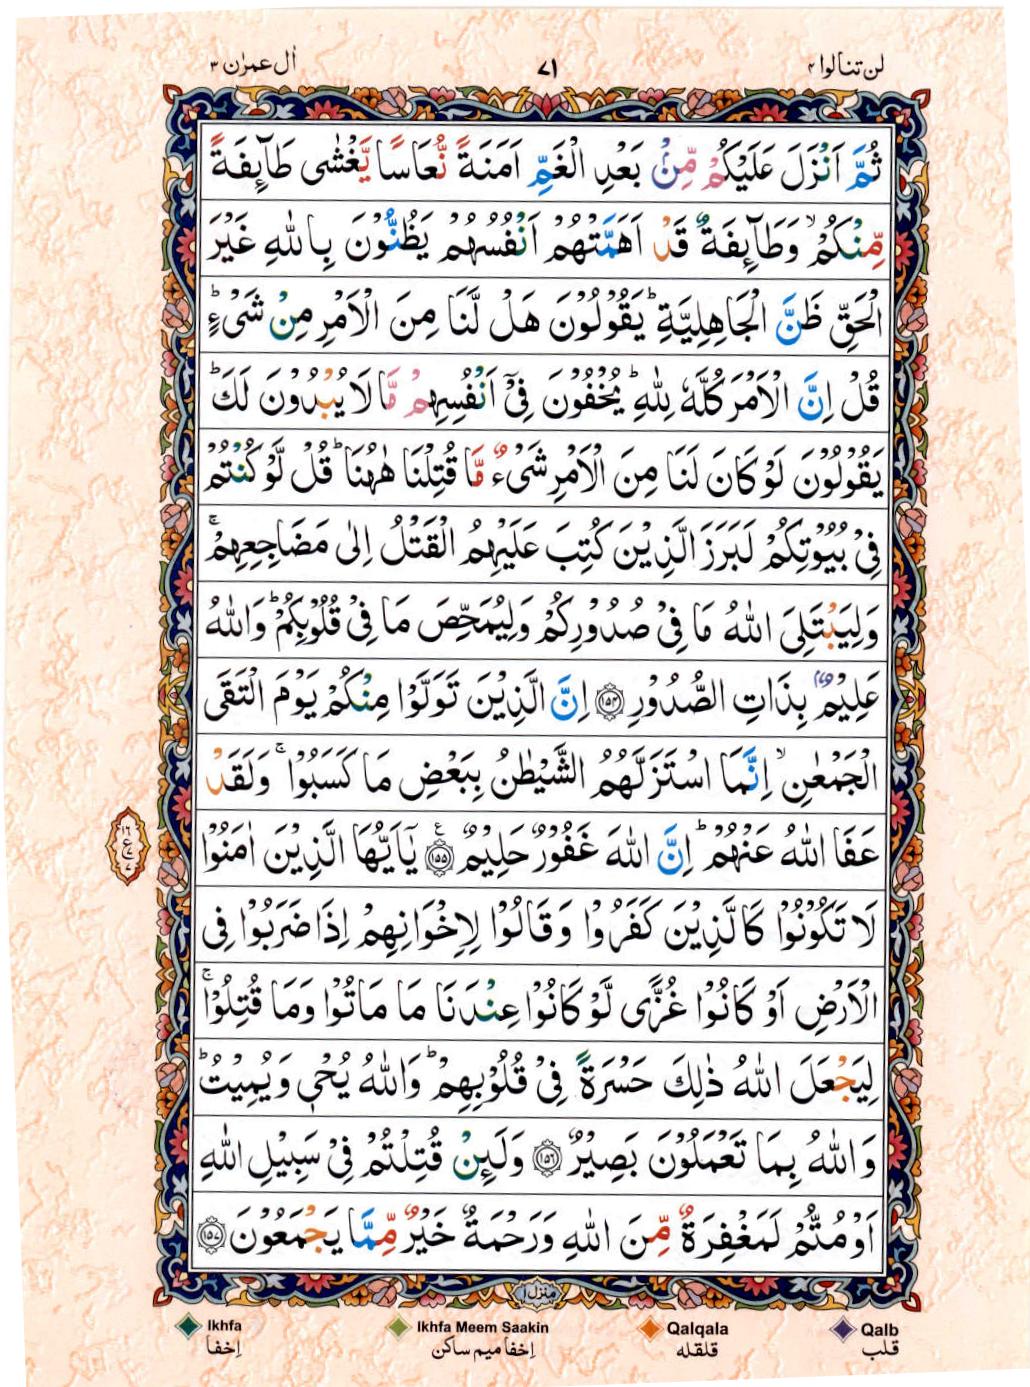 لن تنالوا ۴
۷۱
اٰل عمرٰن ۳
ثُمَّ اَنْزَلَ عَلَيْكُمْ مِّنْۢ بَعْدِ الْغَمِّ اَمَنَةً نُّعَاسًا يَّغْشٰى طَآئِفَةً
مِّنْكُمْ ۙ وَطَآئِفَةٌ قَدْ اَهَمَّتْهُمْ اَنْفُسُهُمْ يَظُنُّوْنَ بِاللّٰهِ غَيْرَ
الْحَقِّ ظَنَّ الْجَاهِلِيَّةِ ؕ يَقُوْلُوْنَ هَلْ لَّنَا مِنَ الْاَمْرِ مِنْ شَىْءٍ ؕ
قُلْ اِنَّ الْاَمْرَ كُلَّهٗ لِلّٰهِ ؕ يُخْفُوْنَ فِىْٓ اَنْفُسِهِمْ مَّا لَا يُبْدُوْنَ لَكَ ؕ
يَقُوْلُوْنَ لَوْ كَانَ لَنَا مِنَ الْاَمْرِ شَىْءٌ مَّا قُتِلْنَا هٰهُنَا ؕ قُلْ لَّوْ كُنْتُمْ
فِىْ بُيُوْتِكُمْ لَبَرَزَ الَّذِيْنَ كُتِبَ عَلَيْهِمُ الْقَتْلُ اِلٰى مَضَاجِعِهِمْ ۚ
وَلِيَبْتَلِىَ اللّٰهُ مَا فِىْ صُدُوْرِكُمْ وَلِيُمَحِّصَ مَا فِىْ قُلُوْبِكُمْ ؕ وَاللّٰهُ
عَلِيْمٌۢ بِذَاتِ الصُّدُوْرِ ﴿۱۵۴﴾ اِنَّ الَّذِيْنَ تَوَلَّوْا مِنْكُمْ يَوْمَ الْتَقَى
الْجَمْعٰنِ ۙ اِنَّمَا اسْتَزَلَّهُمُ الشَّيْطٰنُ بِبَعْضِ مَا كَسَبُوْا ۚ وَلَقَدْ
عَفَا اللّٰهُ عَنْهُمْ ؕ اِنَّ اللّٰهَ غَفُوْرٌ حَلِيْمٌ ﴿۱۵۵﴾ يٰۤاَيُّهَا الَّذِيْنَ اٰمَنُوْا
لَا تَكُوْنُوْا كَالَّذِيْنَ كَفَرُوْا وَقَالُوْا لِاِخْوَانِهِمْ اِذَا ضَرَبُوْا فِى
الْاَرْضِ اَوْ كَانُوْا غُزًّى لَّوْ كَانُوْا عِنْدَنَا مَا مَاتُوْا وَمَا قُتِلُوْا ۚ
لِيَجْعَلَ اللّٰهُ ذٰلِكَ حَسْرَةً فِىْ قُلُوْبِهِمْ ؕ وَاللّٰهُ يُحْىٖ وَيُمِيْتُ ؕ
وَاللّٰهُ بِمَا تَعْمَلُوْنَ بَصِيْرٌ ﴿۱۵۶﴾ وَلَئِنْ قُتِلْتُمْ فِىْ سَبِيْلِ اللّٰهِ
اَوْ مُتُّمْ لَمَغْفِرَةٌ مِّنَ اللّٰهِ وَرَحْمَةٌ خَيْرٌ مِّمَّا يَجْمَعُوْنَ ﴿۱۵۷﴾
منزل ۱
Ikhfa Ikhfa Meem Saakin Qalqala Qalb
اِخفا اِخفا میم ساکن قلقله قلب